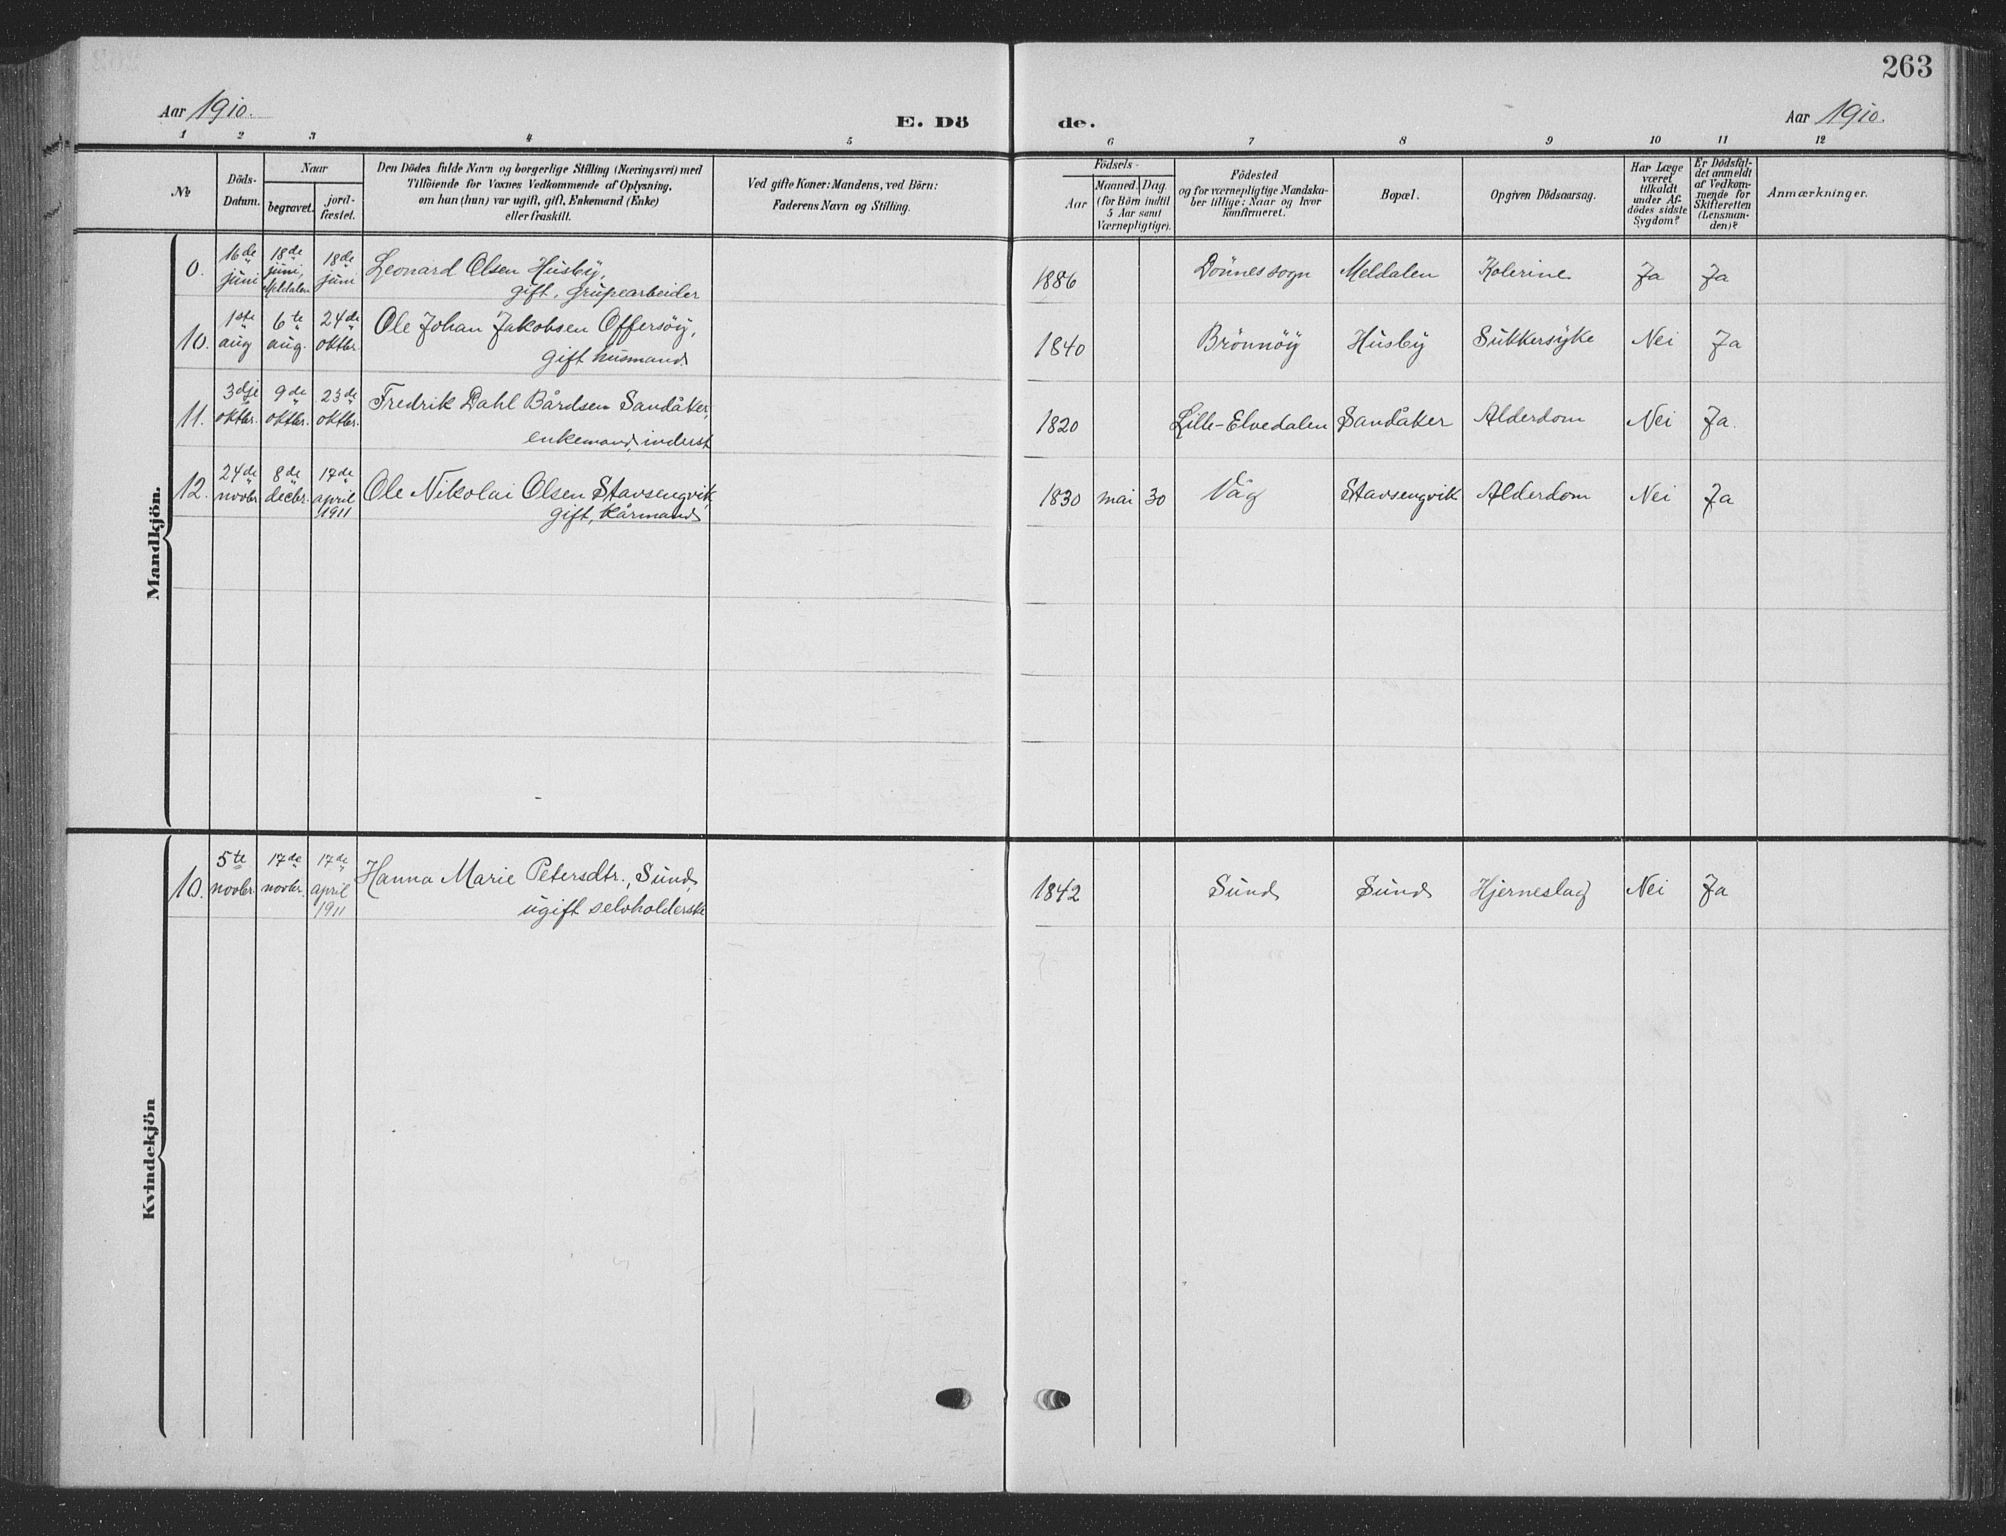 263
Aar 1910.
E. Dö de.
Aar 1910.
1 2 3 4 5 6 7 8 9 10 11 12
№
Döds-
Datum.
Naar
begravet.
jord-
fæstet.
Den Dödes fulde Navn og borgerlige Stilling (Næringsvei) med
Tilföiende for Voxnes Vedkommende af Oplysning,
om han (hun) var ugift, gift, Enkemand (Enke)
eller fraskilt.
Ved gifte Koner: Mandens, ved Börn:
Faderens Navn og Stilling.
Födsels-
Aar
Maaned. Dag.
(for Börn indtil
5 Aar samt
Værnepligtige).
Födested
og for værnepligtige Mandska-
ber tillige: Naar og hvor
konfirmeret.
Bopæl.
Opgiven Dödsaarsag.
Har Læge
været
tilkaldt
under Af-
dödes sidste
Sygdom?
Er Dödsfal-
det anmeldt
af Vedkom-
mende for
Skifteretten
(Lensman-
den)?
Anmærkninger.
Mandkjön.
16de juni
18de juni, Meldalen
18de juni
Leonard Olsen Husby,
gift, grupearbeider
1886
Dönnes sogn
Meldalen
Kolerine
Ja
Ja
10.
1ste aug
6te aug.
24de oktbr.
Ole Johan Jakobsen Offersöy,
gift husmand.
1840
Brönnöy
Husby
Sukkersyke
Nei
Ja
11.
3dje oktbr.
9de oktbr.
23de oktbr.
Fredrik Dahl Bårdsen Sandåker,
enkemand, inderst
1820
Lille-Elvedalen
Sandåker
Alderdom
Nei
Ja.
12.
24de novbr.
8de decbr.
17de april 1911
Ole Nikolai Olsen Stavsengvik,
gift, kårmand
1830 mai 30
Våg
Stavsengvik
Alderdom
Nei
Ja
Kvindekjön
10.
5te novbr.
17de novbr.
17de april 1911
Hanna Marie Petersdtr., Sund,
ugift selvholderske
1842
Sund
Sund
Hjerneslag
Nei
Ja